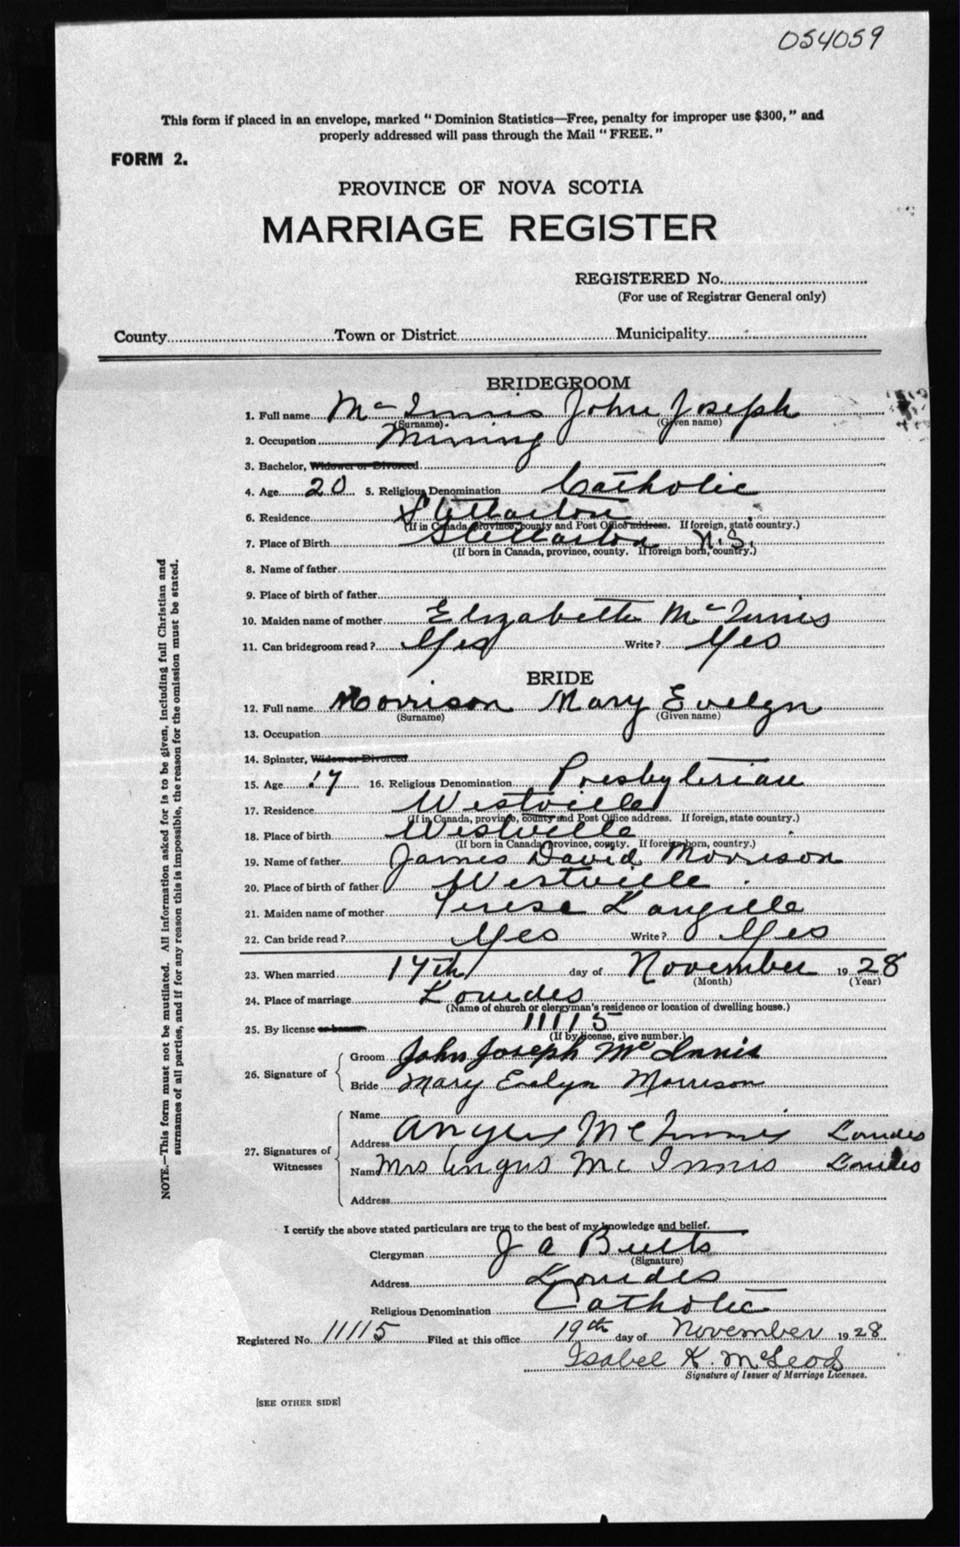 054059
This form if placed in an envelope, marked "Dominion Statistics—Free, penalty for improper use $300," and
properly addressed will pass through the Mail "FREE."
FORM 2.
PROVINCE OF NOVA SCOTIA
MARRIAGE REGISTER
REGISTERED No.
(For use of Registrar General only)
County Town or District Municipality
BRIDEGROOM
1. Full name Mc Innis John Joseph
(Surname) (Given name)
2. Occupation Mining
3. Bachelor, Widower or Divorced
4. Age 20 5. Religious Denomination Catholic
6. Residence Stellarton
(If in Canada, province, county and Post Office address. If foreign, state country.)
7. Place of Birth Stellarton N.S.
(If born in Canada, province, county. If foreign born, country.)
8. Name of father
9. Place of birth of father
10. Maiden name of mother Elizabeth Mc Innis
11. Can bridegroom read? Yes Write? Yes
BRIDE
12. Full name Morrison Mary Evelyn
(Surname) (Given name)
13. Occupation
14. Spinster, Widow or Divorced
15. Age 17 16. Religious Denomination Presbyterian
17. Residence Westville
(If in Canada, province, county and Post Office address. If foreign, state country.)
18. Place of birth Westville
(If born in Canada, province, county. If foreign born, country.)
19. Name of father James David Morrison
20. Place of birth of father Westville
21. Maiden name of mother Terese Langille
22. Can bride read? Yes Write? Yes
23. When married 17th day of November 1928
(Month) (Year)
24. Place of marriage Lourdes
(Name of church or clergyman's residence or location of dwelling house.)
25. By license or banns 11115
(If by license, give number.)
26. Signature of
Groom John Joseph McInnis
Bride Mary Evelyn Morrison
27. Signatures of Witnesses
Name
Address Angus McInnis Lourdes
Name Mrs Angus Mc Innis Lourdes
Address
I certify the above stated particulars are true to the best of my knowledge and belief.
Clergyman J A Butts
(Signature)
Address Lourdes
Religious Denomination Catholic
Registered No. 11115 Filed at this office 19th day of November 1928
Isabel K. McLeod
Signature of Issuer of Marriage Licenses.
[SEE OTHER SIDE]
NOTE.—This form must not be mutilated. All information asked for is to be given, including full Christian and
surnames of all parties, and if for any reason this is impossible, the reason for the omission must be stated.